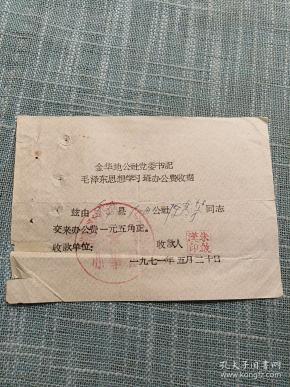 金华地公社党委书记
毛泽东思想学习班办公费收据
兹由 县 公社 同志
交来办公费一元五角正。
收款单位： 收款人
一九七一年五月二十日
孔夫子旧书网